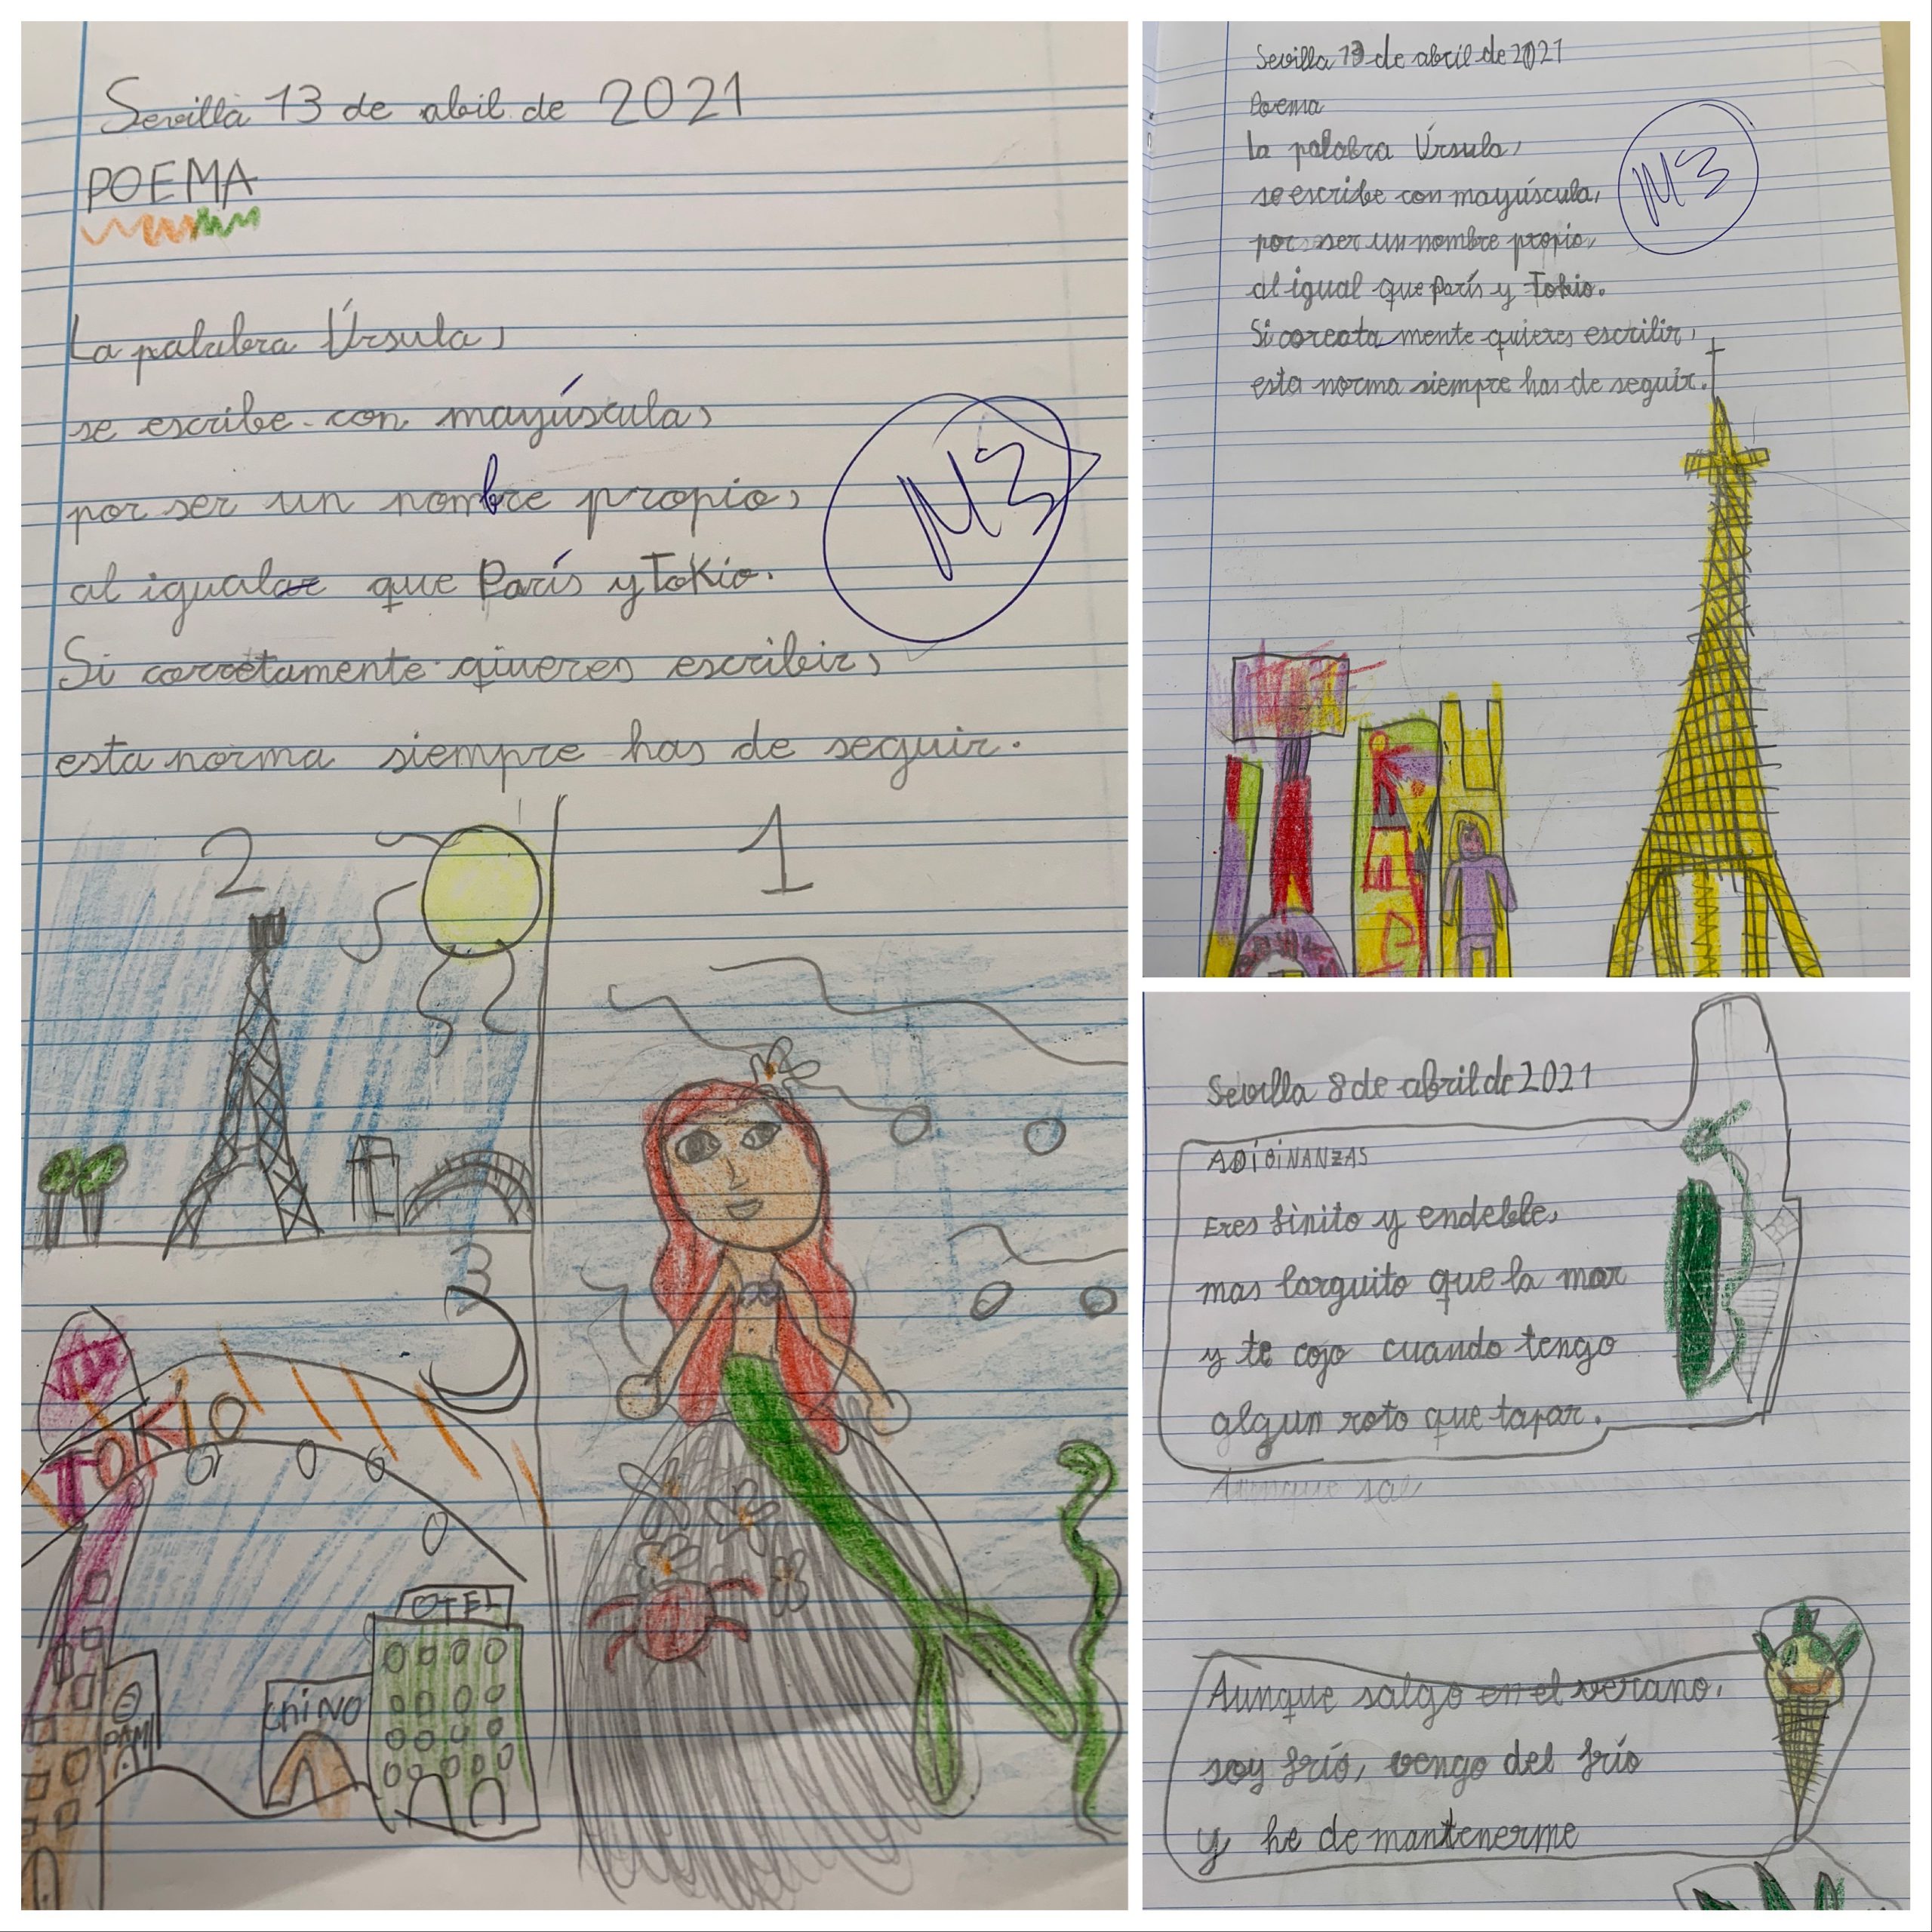 Sevilla 13 de abil de 2021
POEMA
La palabra Úrsula,
se escribe con mayúscula,
por ser un nombre propio,
al igualar que París y Tokio.
Si corretamente qiueres escribir,
esta norma siempre has de seguir.
2
1
3
TOKIO
OTEL
CHINO
Sevilla 13 de abril de 2021
Poema
La palabra Úrsula,
se escribe con mayúscula,
por ser un nombre propio,
al igual que París y Tokio.
Si coreata mente quieres escribir,
esta norma siempre has de seguir.
Sevilla 8 de abril de 2021
ADIBINANZAS
Eres finito y endeble,
mas larguito que la mar
y te cojo cuando tengo
algun roto que tapar.
Aunque sal
Aunque salgo en el verano,
soy frío, vengo del frío
y he de mantenerme